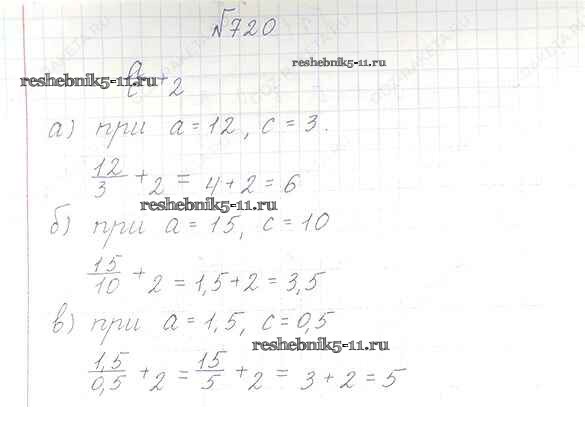 №720
reshebnik5-11.ru
reshebnik5-11.ru
+ 2
а) при a = 12, c = 3.
12/3 + 2 = 4 + 2 = 6
reshebnik5-11.ru
б) при a = 15, c = 10
15/10 + 2 = 1,5 + 2 = 3,5
в) при a = 1,5, c = 0,5
reshebnik5-11.ru
1,5/0,5 + 2 = 15/5 + 2 = 3 + 2 = 5